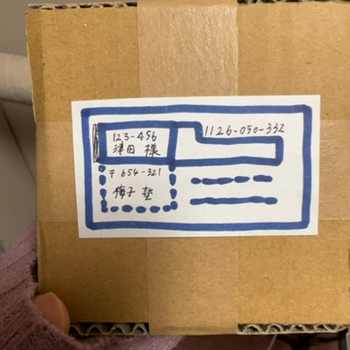 123-456
津田 様
1126-050-332
〒654-321
梅子 塾